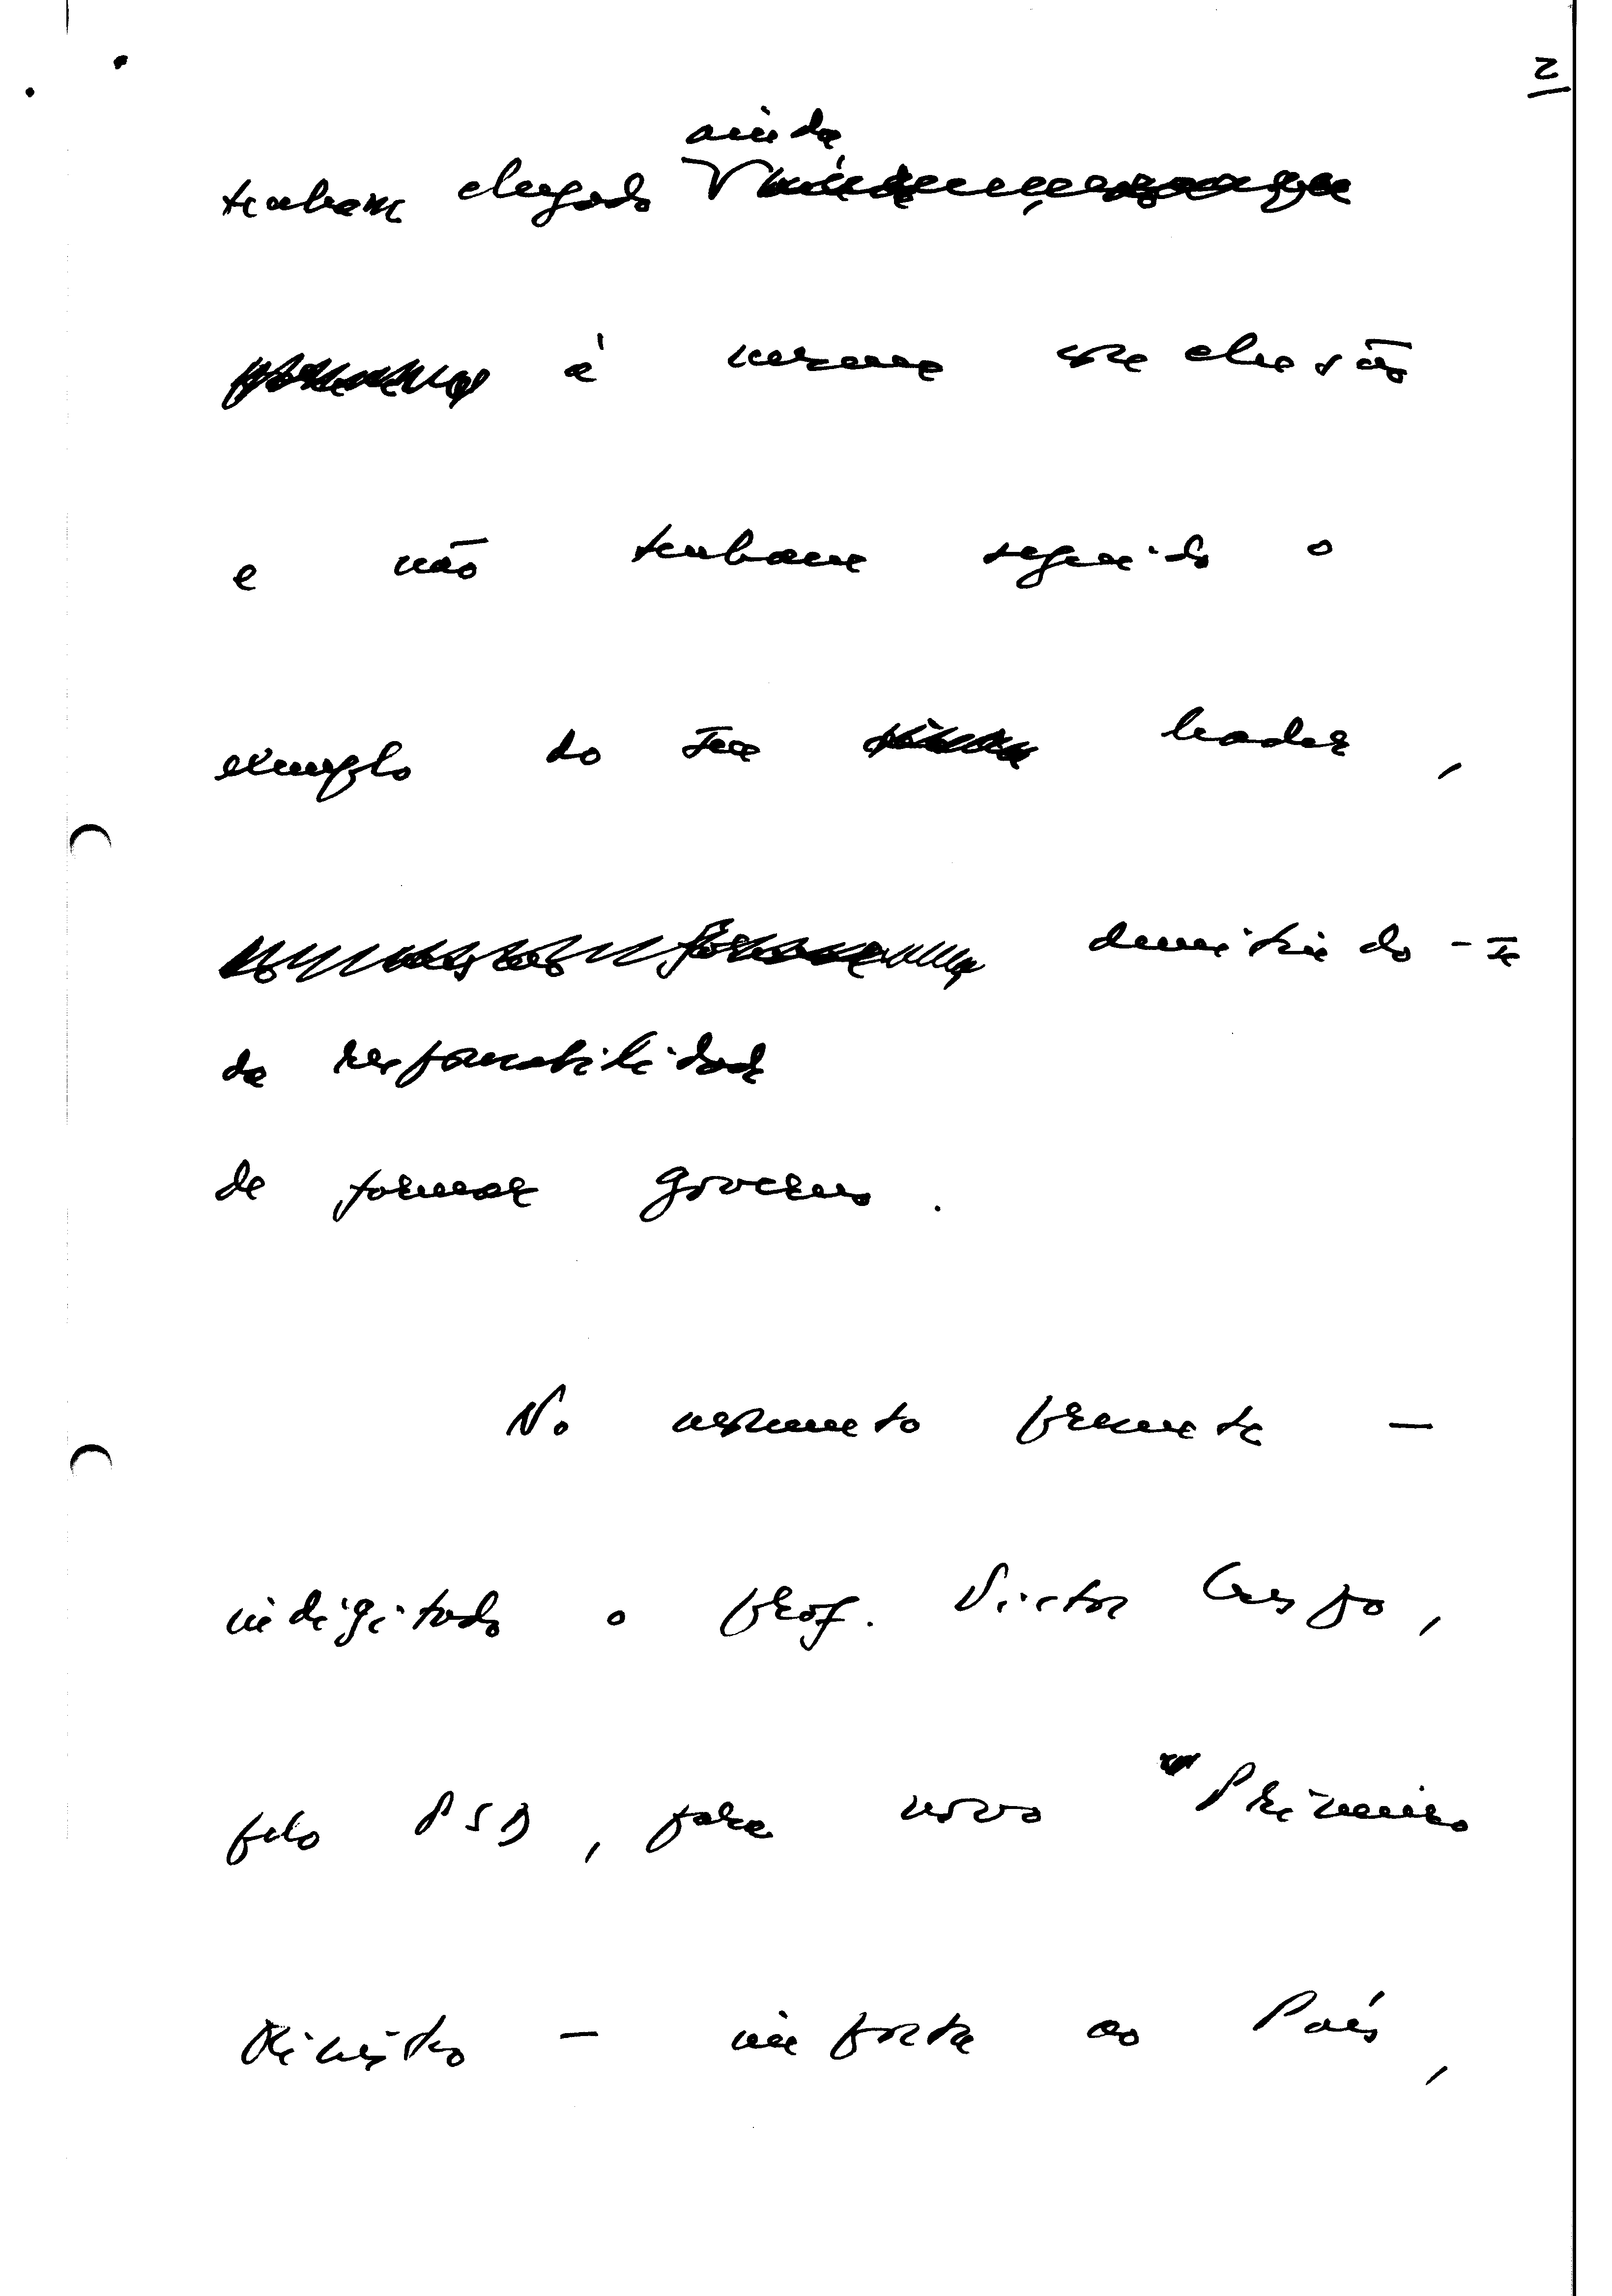 2
ainda
tenham chegado
à mesma conclusão
e não tenham seguido o
exemplo do seu leader,
demitindo-se
da responsabilidade
de formar governo.
No momento presente —
indigitado o prof. Victor Crespo,
pelo PSD, para novo Primeiro
Ministro — importa ao País,